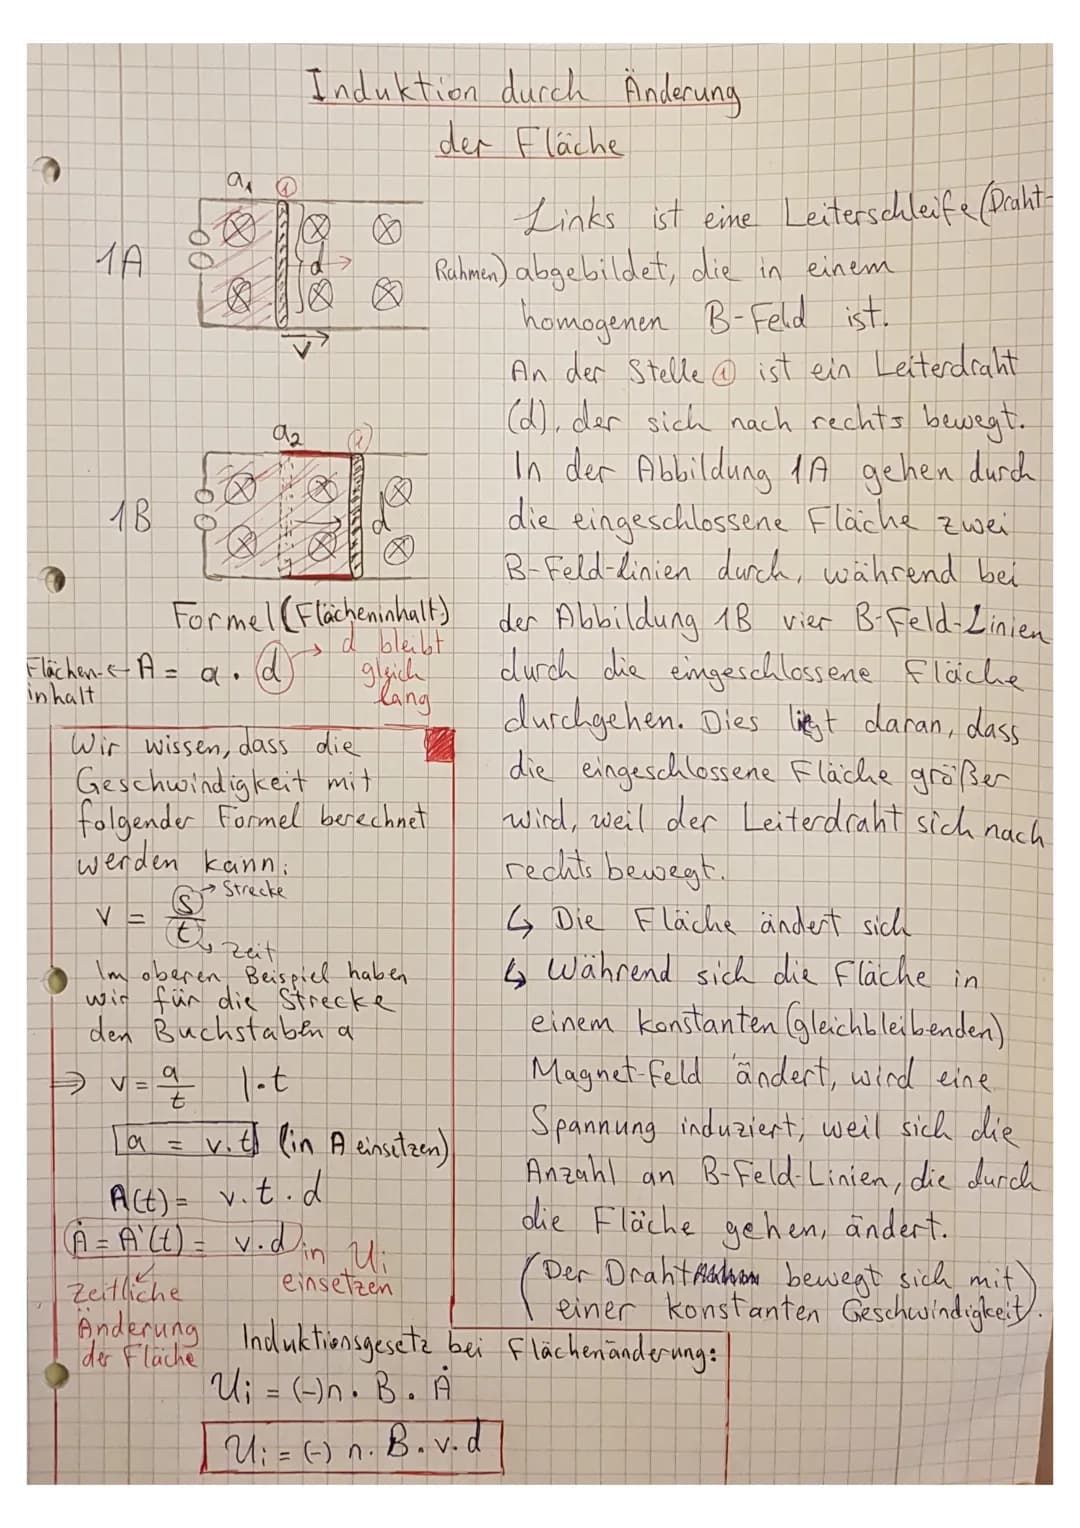 Induktion durch Änderung
der Fläche
a₁ ①
1A
d
v
Links ist eine Leiterschleife (Draht-
Rahmen) abgebildet, die in einem
homogenen B-Feld ist.
An der Stelle ① ist ein Leiterdraht
(d), der sich nach rechts bewegt.
In der Abbildung 1A gehen durch
die eingeschlossene Fläche zwei
B-Feld-linien durch, während bei
der Abbildung 1B vier B-Feld-Linien
durch die eingeschlossene Fläche
durchgehen. Dies liegt daran, dass
die eingeschlossene Fläche größer
wird, weil der Leiterdraht sich nach
rechts bewegt.
↳ Die Fläche ändert sich
↳ Während sich die Fläche in
einem konstanten (gleichbleibenden)
Magnet-Feld ändert, wird eine
Spannung induziert, weil sich die
Anzahl an B-Feld-Linien, die durch
die Fläche gehen, ändert.
(Der Draht bewegt sich mit
einer konstanten Geschwindigkeit).
a₂
1B
d
Formel (Flächeninhalt)
Flächen- ← A = a · d → d bleibt
inhalt gleich
lang
Wir wissen, dass die
Geschwindigkeit mit
folgender Formel berechnet
werden kann:
v = s/t → Strecke
↳ Zeit
Im oberen Beispiel haben
wir für die Strecke
den Buchstaben a
⇒ v = a/t |·t
a = v·t (in A einsetzen)
A(t) = v·t·d
Ȧ = A'(t) = v·d in Ui
einsetzen
Zeitliche
Änderung
der Fläche
Induktionsgesetz bei Flächenänderung:
Ui = (-)n · B · Ȧ
Ui = (-) n · B · v · d